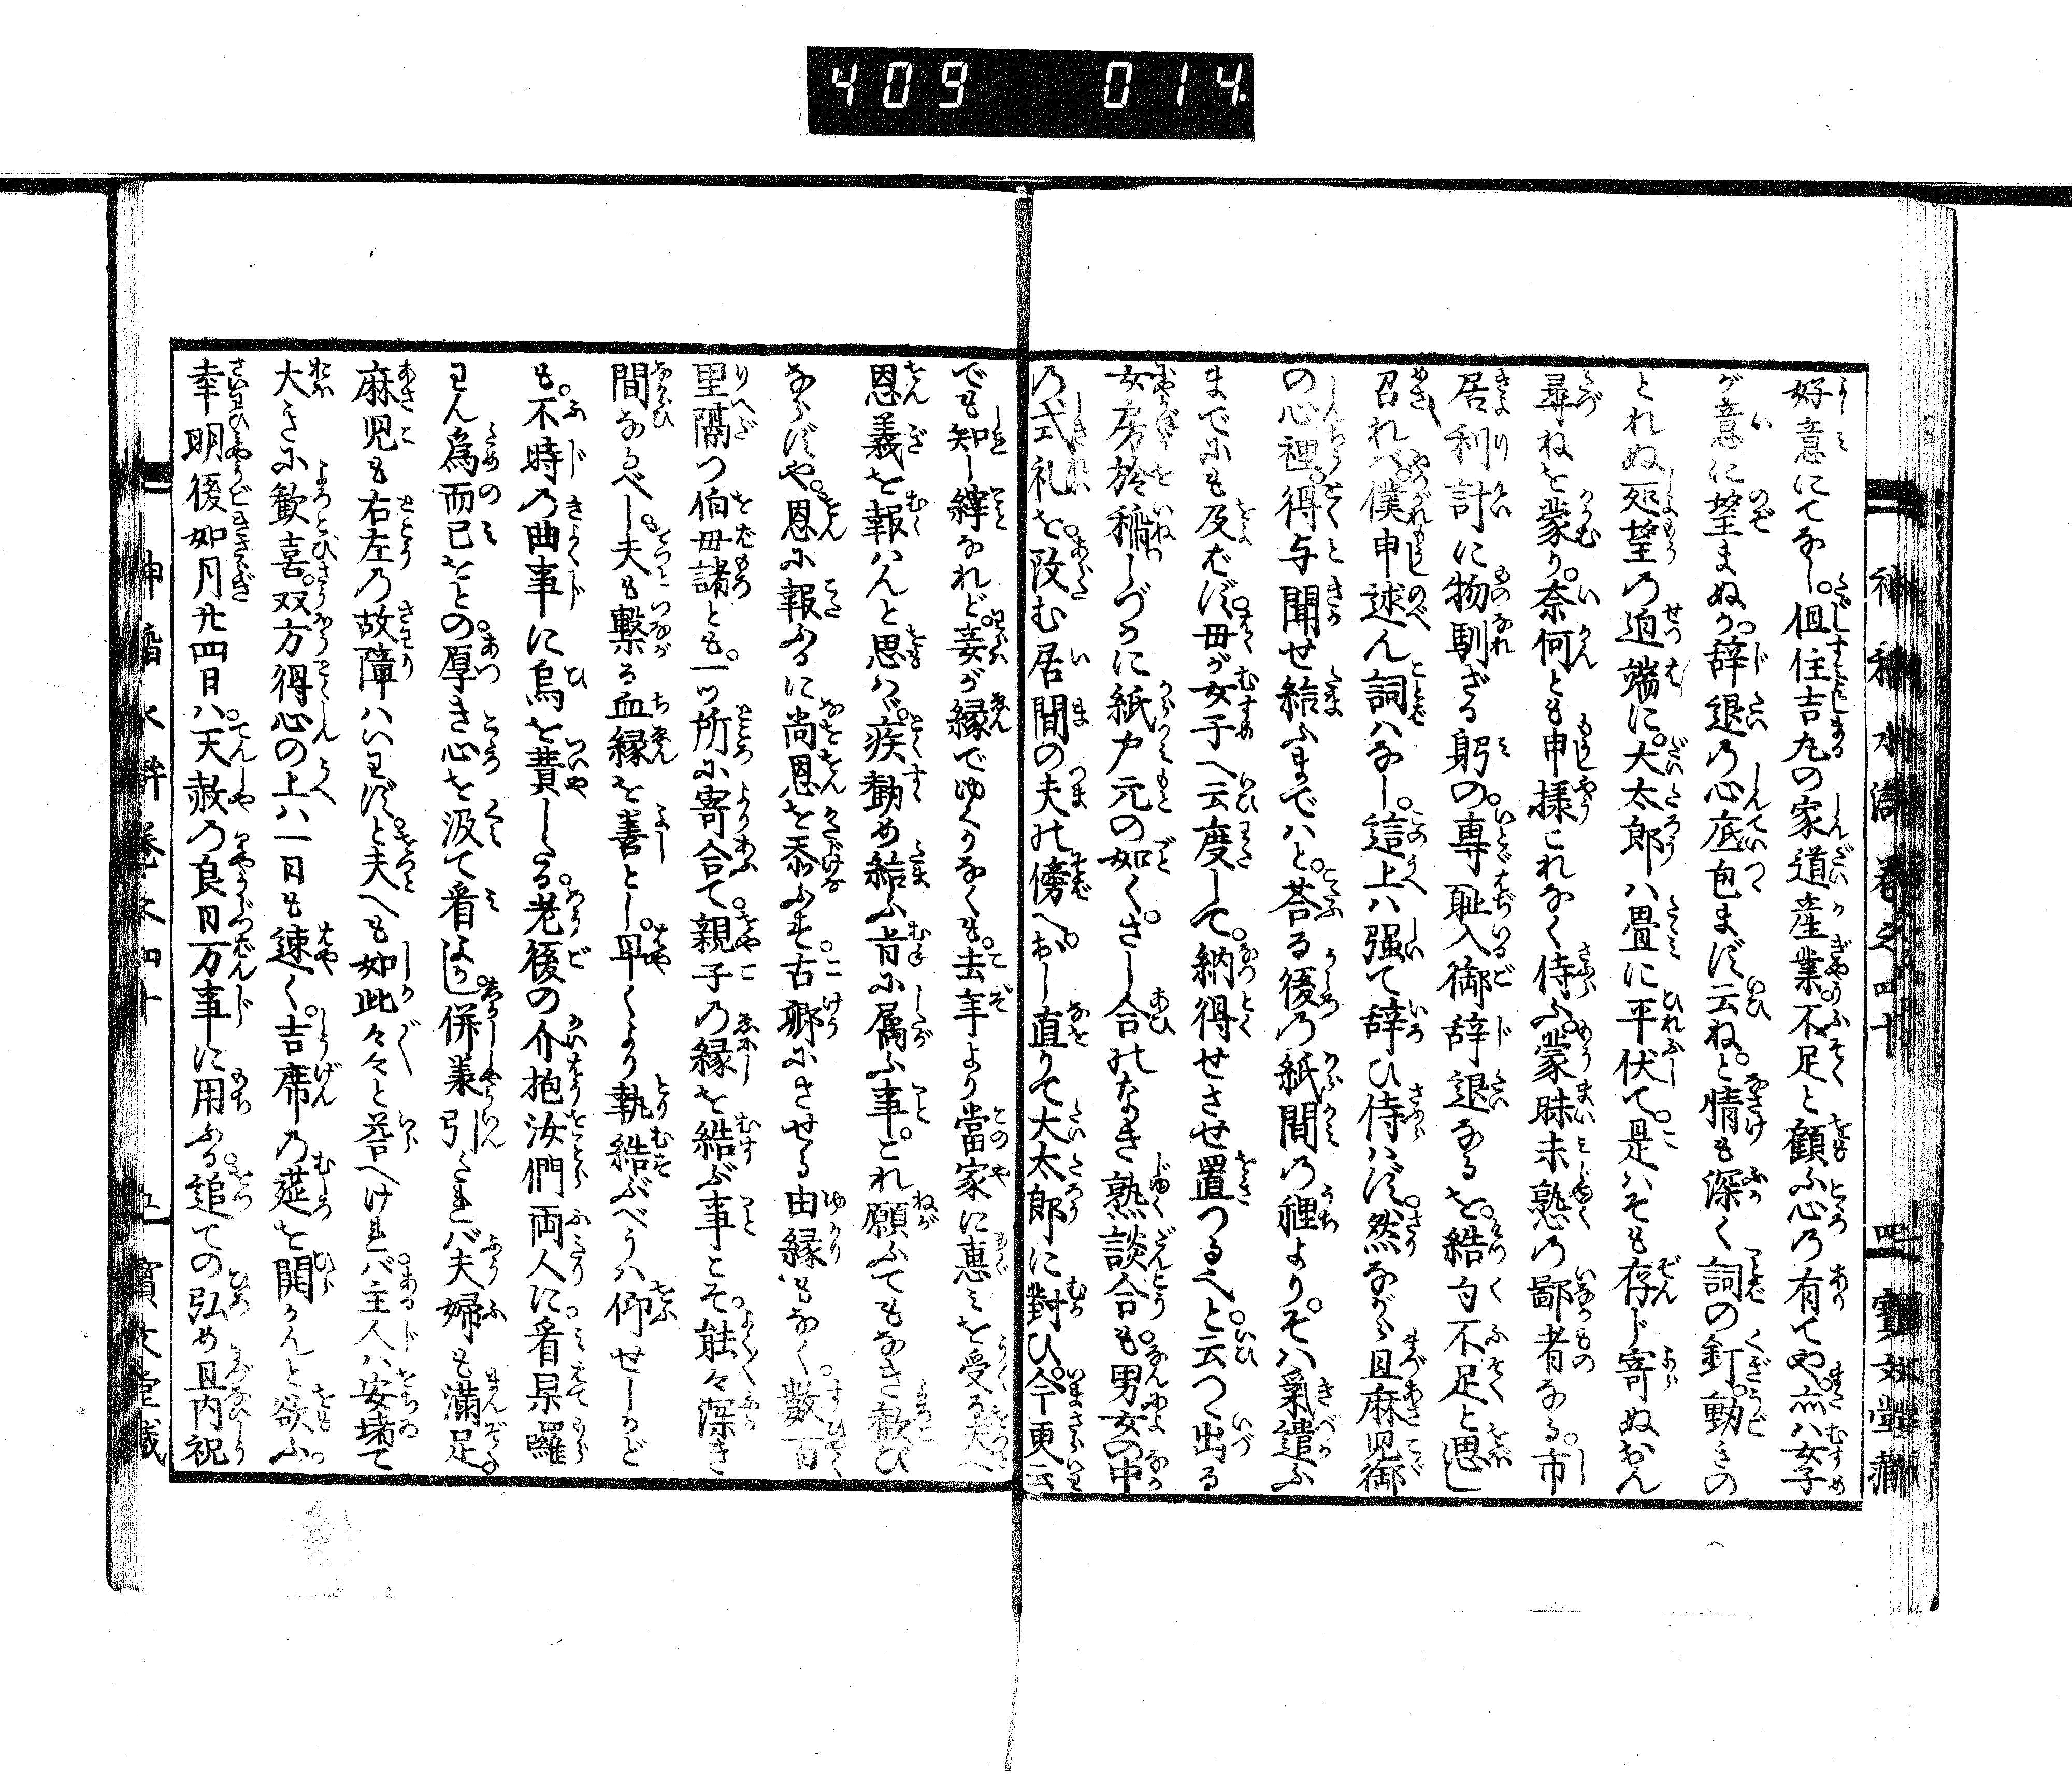 409 014
神稲水滸 巻之四十 四 寳文堂藏
好意にてなし。但住吉丸の家道産業不足と顧ふ心の有てや。亦ハ女子
が意に望まぬか。辞退の心底包まず云ね。と情も深く詞の釘。動きの
とれぬ処望の迫端に。大太郎ハ畳に平伏て。是ハそも存じ寄ぬおん
尋ねを蒙り。奈何とも申様これなく侍ふ。蒙昧未熟の鄙者なる。市
居利計に物馴ざる躬の。専耻入御辞退なるを。結句不足と思し
召れバ。僕申述ん詞ハなし。這上ハ强て辞ひ侍ハず。然ながら且麻児御
の心裡。得与聞せ給ふまでハと。荅る後の紙間の裡より。そハ氣遣ふ
までにも及ばず。母が女子へ云度して。納得せさせ置つるへと。云つゝ出る
女房於稲しづかに紙戸元の如く。さし合のなき熟談合も。男女の中
の式礼を。改む居間の夫の傍へ。おし直りて大太郎に對ひ。今更云
でも知し緯なれど。妾が縁でゆくりなくも。去年より當家に惠ミを受る夫へ
恩義を報ハんと思ハゞ。疾勧め給ふ旨に属ふ事。これ願ふてもなき歓び
ならずや。恩に報ふるに尚恩を忝ふす。古郷にさせる由縁もなく。數百
里隔つ伯母諸とも。一ッ所に寄合て。親子の縁を結ぶ事こそ。能々深き
間なるべし夫も繋る血縁を善とし。早くより執結ぶべうハ仰せしかど
も。不時の曲事に烏を費しぬる。老後の介抱汝們両人に。看杲囉
はん為而已をとの。厚き心を汲て看よかし。併義引たれバ夫婦も満足。
麻児も右左の故障ハいはずと。夫へも如此々々と荅へけれバ。主人ハ安堵て
大きに歓喜。双方得心の上ハ一日も速く。吉席の莚を開かんと欲ふ。
幸明後如月廿四日ハ。天赦の良日万事に用ふる。追ての弘め且内祝
神稲水滸 巻之四十 五 寳文堂藏